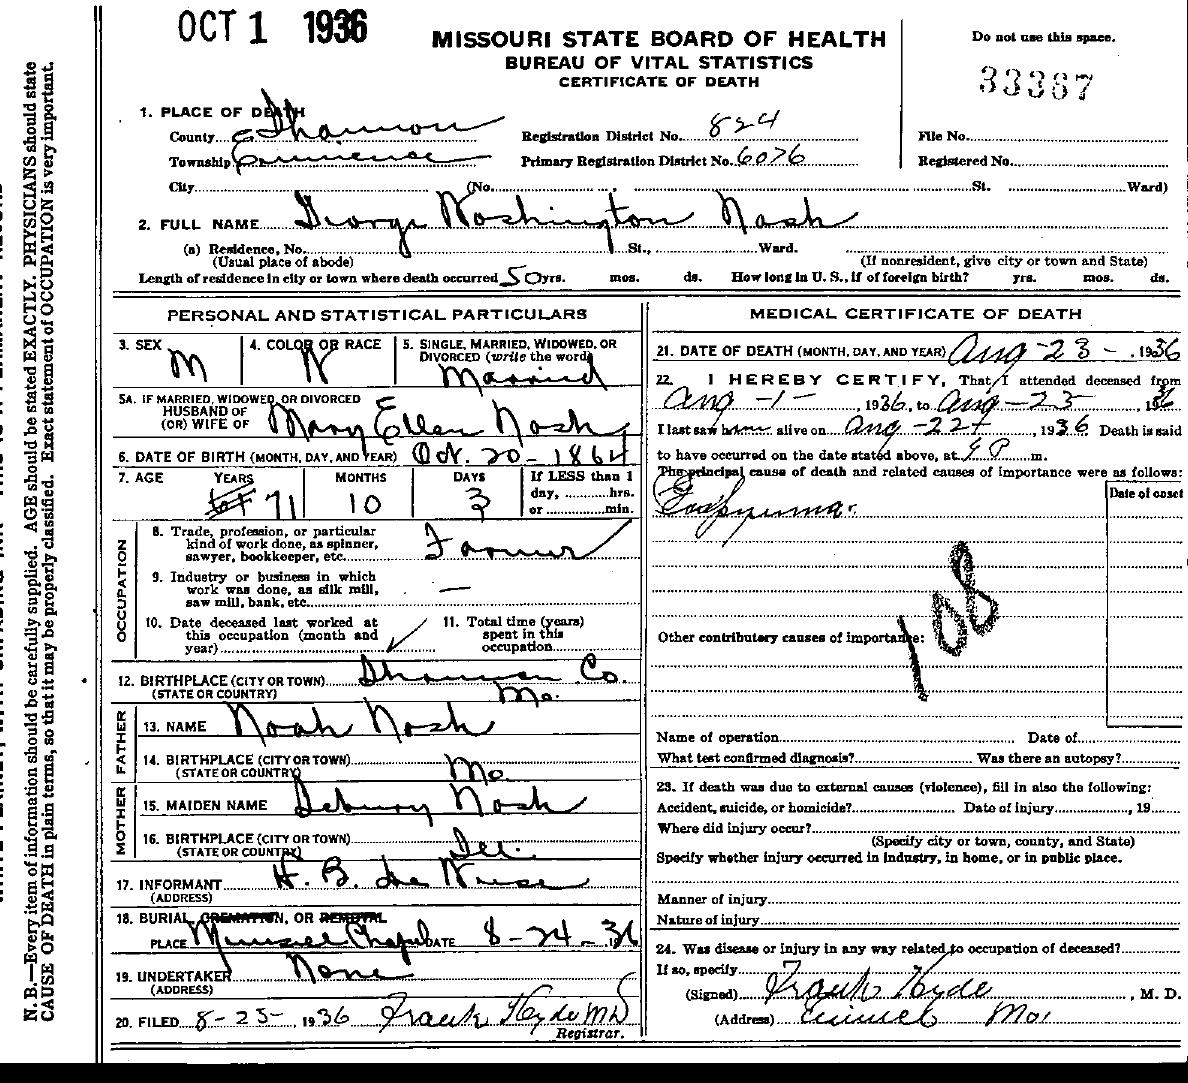 OCT 1 1936
MISSOURI STATE BOARD OF HEALTH
BUREAU OF VITAL STATISTICS
CERTIFICATE OF DEATH
Do not use this space.
33387
1. PLACE OF DEATH
County Shannon Registration District No. 824 File No.
Township Eminence Primary Registration District No. 6076 Registered No.
City (No. , St. Ward)
2. FULL NAME George Washington Nash
(a) Residence, No. St., Ward.
(Usual place of abode) (If nonresident, give city or town and State)
Length of residence in city or town where death occurred 50 yrs. mos. ds. How long in U. S., if of foreign birth? yrs. mos. ds.
PERSONAL AND STATISTICAL PARTICULARS
3. SEX 4. COLOR OR RACE 5. SINGLE, MARRIED, WIDOWED, OR
DIVORCED (write the word)
M W Married
5A. IF MARRIED, WIDOWED, OR DIVORCED
HUSBAND OF
(OR) WIFE OF Mary Ellen Nash
6. DATE OF BIRTH (MONTH, DAY, AND YEAR) Oct. 20 - 1864
7. AGE YEARS MONTHS DAYS If LESS than 1
day, hrs.
or min.
71 10 3
OCCUPATION
8. Trade, profession, or particular
kind of work done, as spinner,
sawyer, bookkeeper, etc. Farmer
9. Industry or business in which
work was done, as silk mill,
saw mill, bank, etc. —
10. Date deceased last worked at
this occupation (month and
year)
11. Total time (years)
spent in this
occupation
12. BIRTHPLACE (CITY OR TOWN) Shannon Co.
(STATE OR COUNTRY) Mo.
FATHER
13. NAME Noah Nash
14. BIRTHPLACE (CITY OR TOWN)
(STATE OR COUNTRY) Mo.
MOTHER
15. MAIDEN NAME Nash
16. BIRTHPLACE (CITY OR TOWN)
(STATE OR COUNTRY) Ill.
17. INFORMANT H. B.
(ADDRESS)
18. BURIAL, CREMATION, OR REMOVAL
PLACE Chapel DATE 8-24-1936
19. UNDERTAKER None
(ADDRESS)
20. FILED 8-25-, 1936 Frank Hyde MD
Registrar.
MEDICAL CERTIFICATE OF DEATH
21. DATE OF DEATH (MONTH, DAY, AND YEAR) Aug-23-, 1936
22. I HEREBY CERTIFY, That I attended deceased from
Aug -1-, 1936, to Aug-23-, 1936
I last saw him alive on Aug -22, 1936 Death is said
to have occurred on the date stated above, at P m.
The principal cause of death and related causes of importance were as follows:
Date of onset
108
Other contributory causes of importance:
Name of operation Date of
What test confirmed diagnosis? Was there an autopsy?
23. If death was due to external causes (violence), fill in also the following:
Accident, suicide, or homicide? Date of injury , 19
Where did injury occur?
(Specify city or town, county, and State)
Specify whether injury occurred in industry, in home, or in public place.
Manner of injury
Nature of injury
24. Was disease or injury in any way related to occupation of deceased?
If so, specify
(Signed) Frank Hyde , M. D.
(Address) Mo.
N. B.—Every item of information should be carefully supplied. AGE should be stated EXACTLY. PHYSICIANS should state
CAUSE OF DEATH in plain terms, so that it may be properly classified. Exact statement of OCCUPATION is very important.